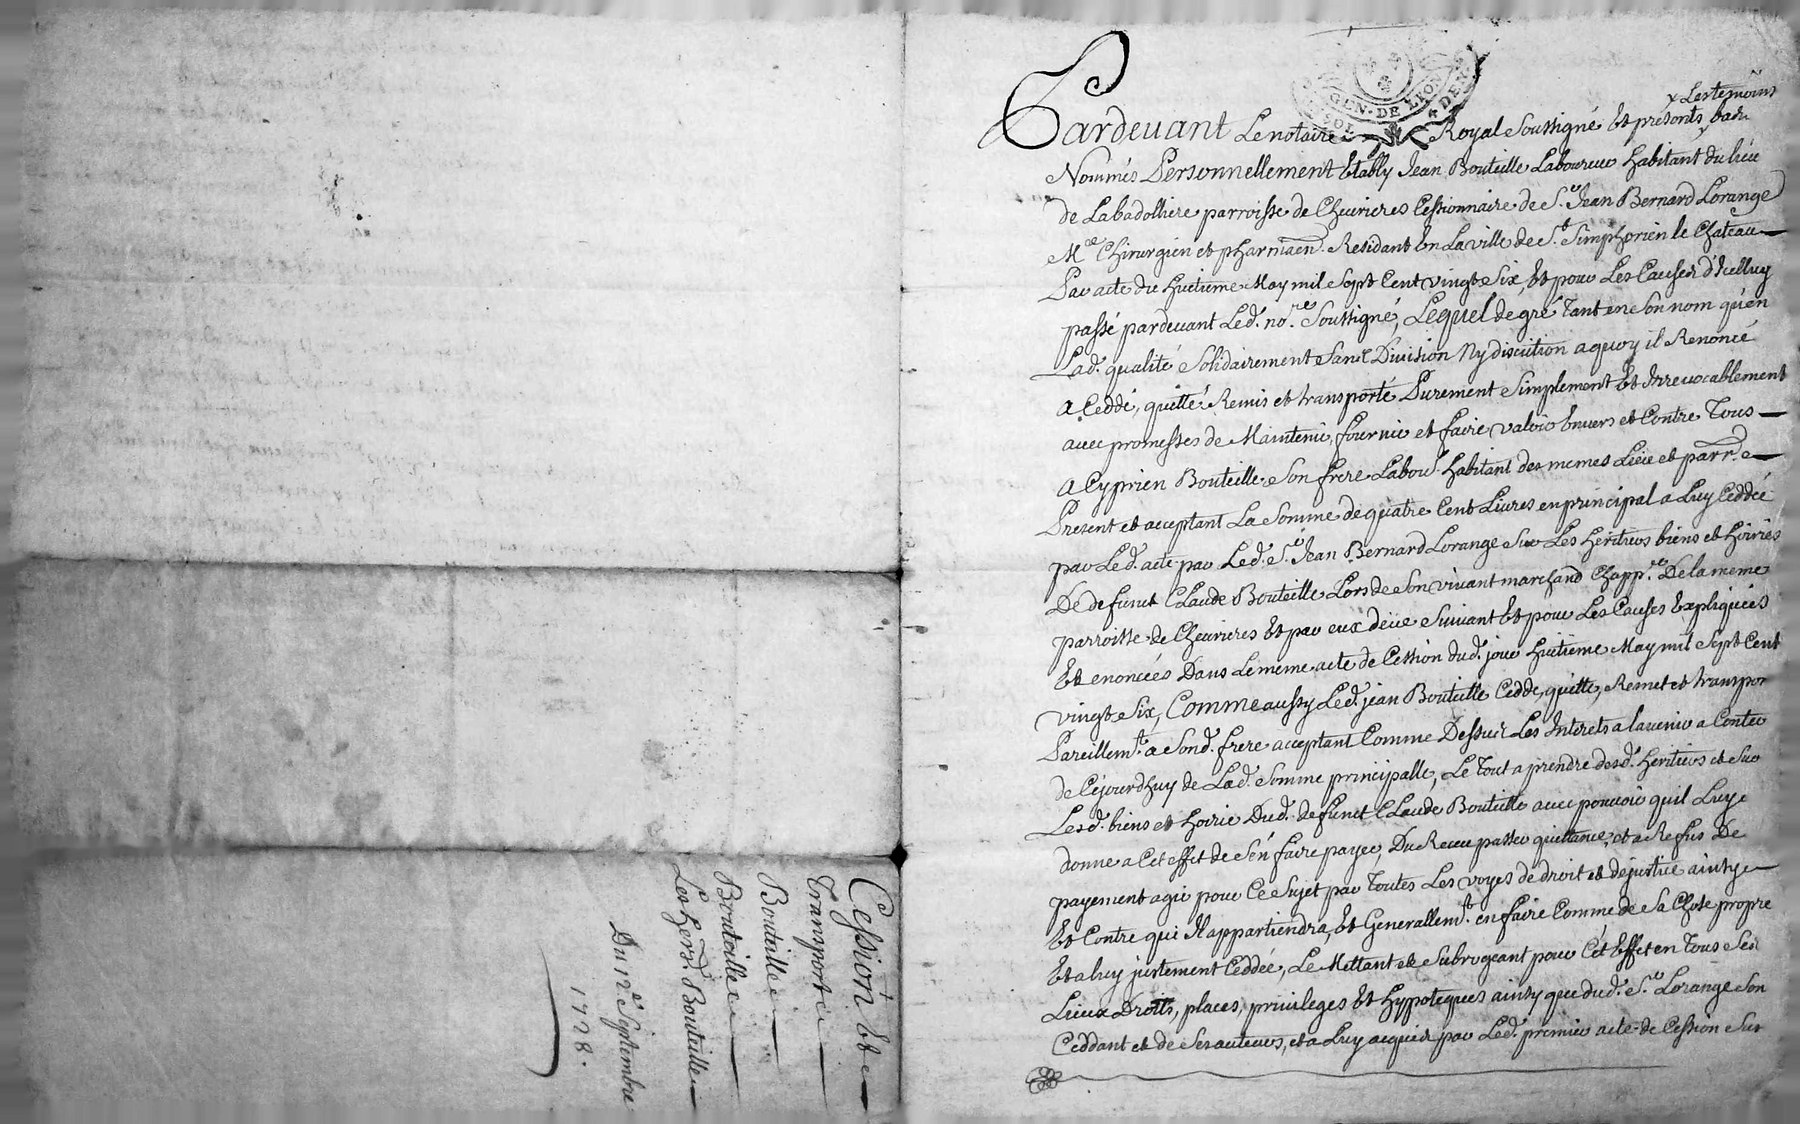 Cession Et
Transport
Bouteille
Bouteille
Les hers. Bouteille
Du 12e. Septembre
1728.
GEN. DE LION
SOL DEN.
x Les temoins
Pardevant Le notaire Royal Soussigné Et présents x bas
Nommés Personnellement Etably Jean Bouteille Laboureur habitant du lieu
de Labadolliere parroisse de Chevrieres Cessionnaire de Sr. Jean Bernard Lorange
Me. Chirurgien et pharmacn. Residant En La ville de St. Simphorien le Chateau
Par acte du Huitieme May mil Sept Cent vingt Six, Et pour Les Causes d'Icelluy
passé pardevant Led. nore. Soussigné, Lequel de gré Tant en Son nom qu'en
Lad. qualité Solidairement Sans Division Ny discution a quoy il Renoncé
A Ceddé, quitté Remis et transporté Purement Simplement Et Irrevocablement
avec promesses de Maintenir, fournir et faire valoir Envers et Contre Tous
A Cyprien Bouteille Son frere Labour. habitant des memes Lieu et parre.
Present et acceptant La Somme de quatre Cent Livres en principal a Luy Ceddée
par Led. acte par Led. Sr. Jean Bernard Lorange Sur Les Heritiers biens et hoiries
De defunct Claude Bouteille Lors de Son vivant marchand Chappr. De la meme
parroisse de Chevrieres Et par eux deüe Suivant Et pour Les Causes Expliquées
Et enoncées Dans Le meme acte de Cession dud. jour Huitieme May mil Sept Cent
vingt Six, Comme aussy Led. jean Bouteille Cedde, quitte, Remet et transpor
Pareillemt. a Sond. frere acceptant Comme Dessus Les Interets a l'avenir a Conter
de Cejourdhuy de Lad. Somme principalle, Le Tout a prendre desd. Heritiers et Sur
Lesd. biens et hoirie Dud. defunct Claude Bouteille avec pouvoir quil Luy
donne a Cet effet de S'en faire payer, Du Receu passer quittance, et a Refus De
payement agir pour Ce Sujet par Toutes Les voyes de droit et de justice ainsy
Et Contre qui Il appartiendra, Et Generallemt. en faire Comme de Sa Chose propre
Et a luy justement Ceddée, Le Mettant et Subrogeant pour Cét Effet en Tous Ses
Lieux Droits, places, privileges Et hypoteques ainsy que dud. Sr. Lorange Son
Ceddant et de Ses auteurs, et a Luy acquis par Led. premier acte de Cession Sur